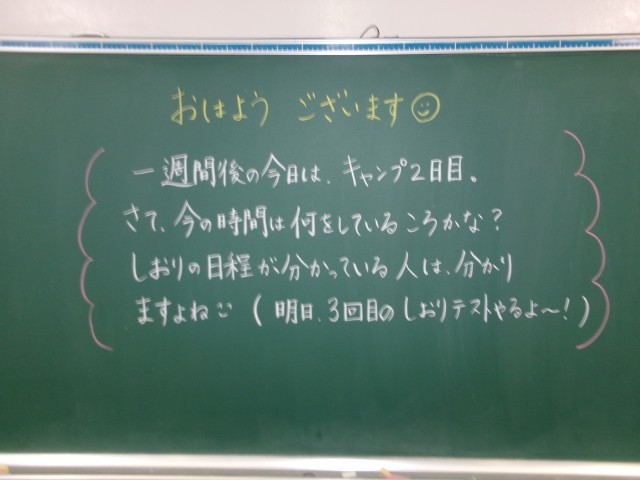 おはよう ございます
一週間後の今日は、キャンプ2日目。
さて、今の時間は何をしているころかな?
しおりの日程が分かっている人は、分かり
ますよね (明日、3回目のしおりテストやるよ〜!)